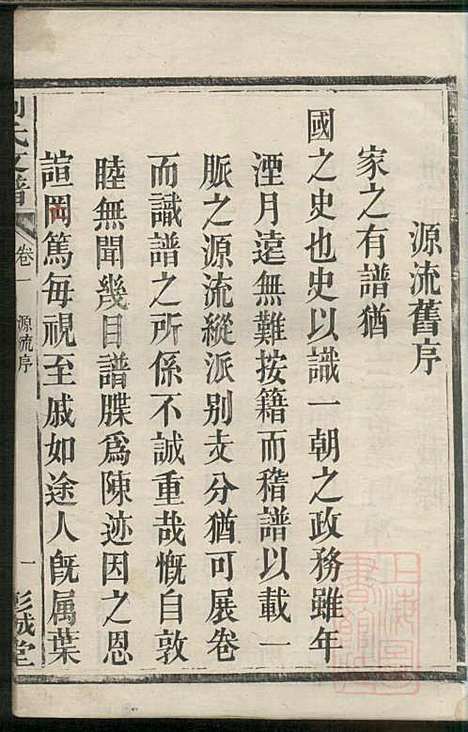 源流舊序
家之有譜猶
國之史也史以識一朝之政務雖年
湮月遠無難按籍而稽譜以載一
脈之源流縱派别支分猶可展卷
而識譜之所係不誠重哉慨自敦
睦無聞幾目譜牒為陳迹因之恩
誼罔篤每視至戚如途人旣属葉
劉氏支譜
卷一
源流序
一
彭城堂